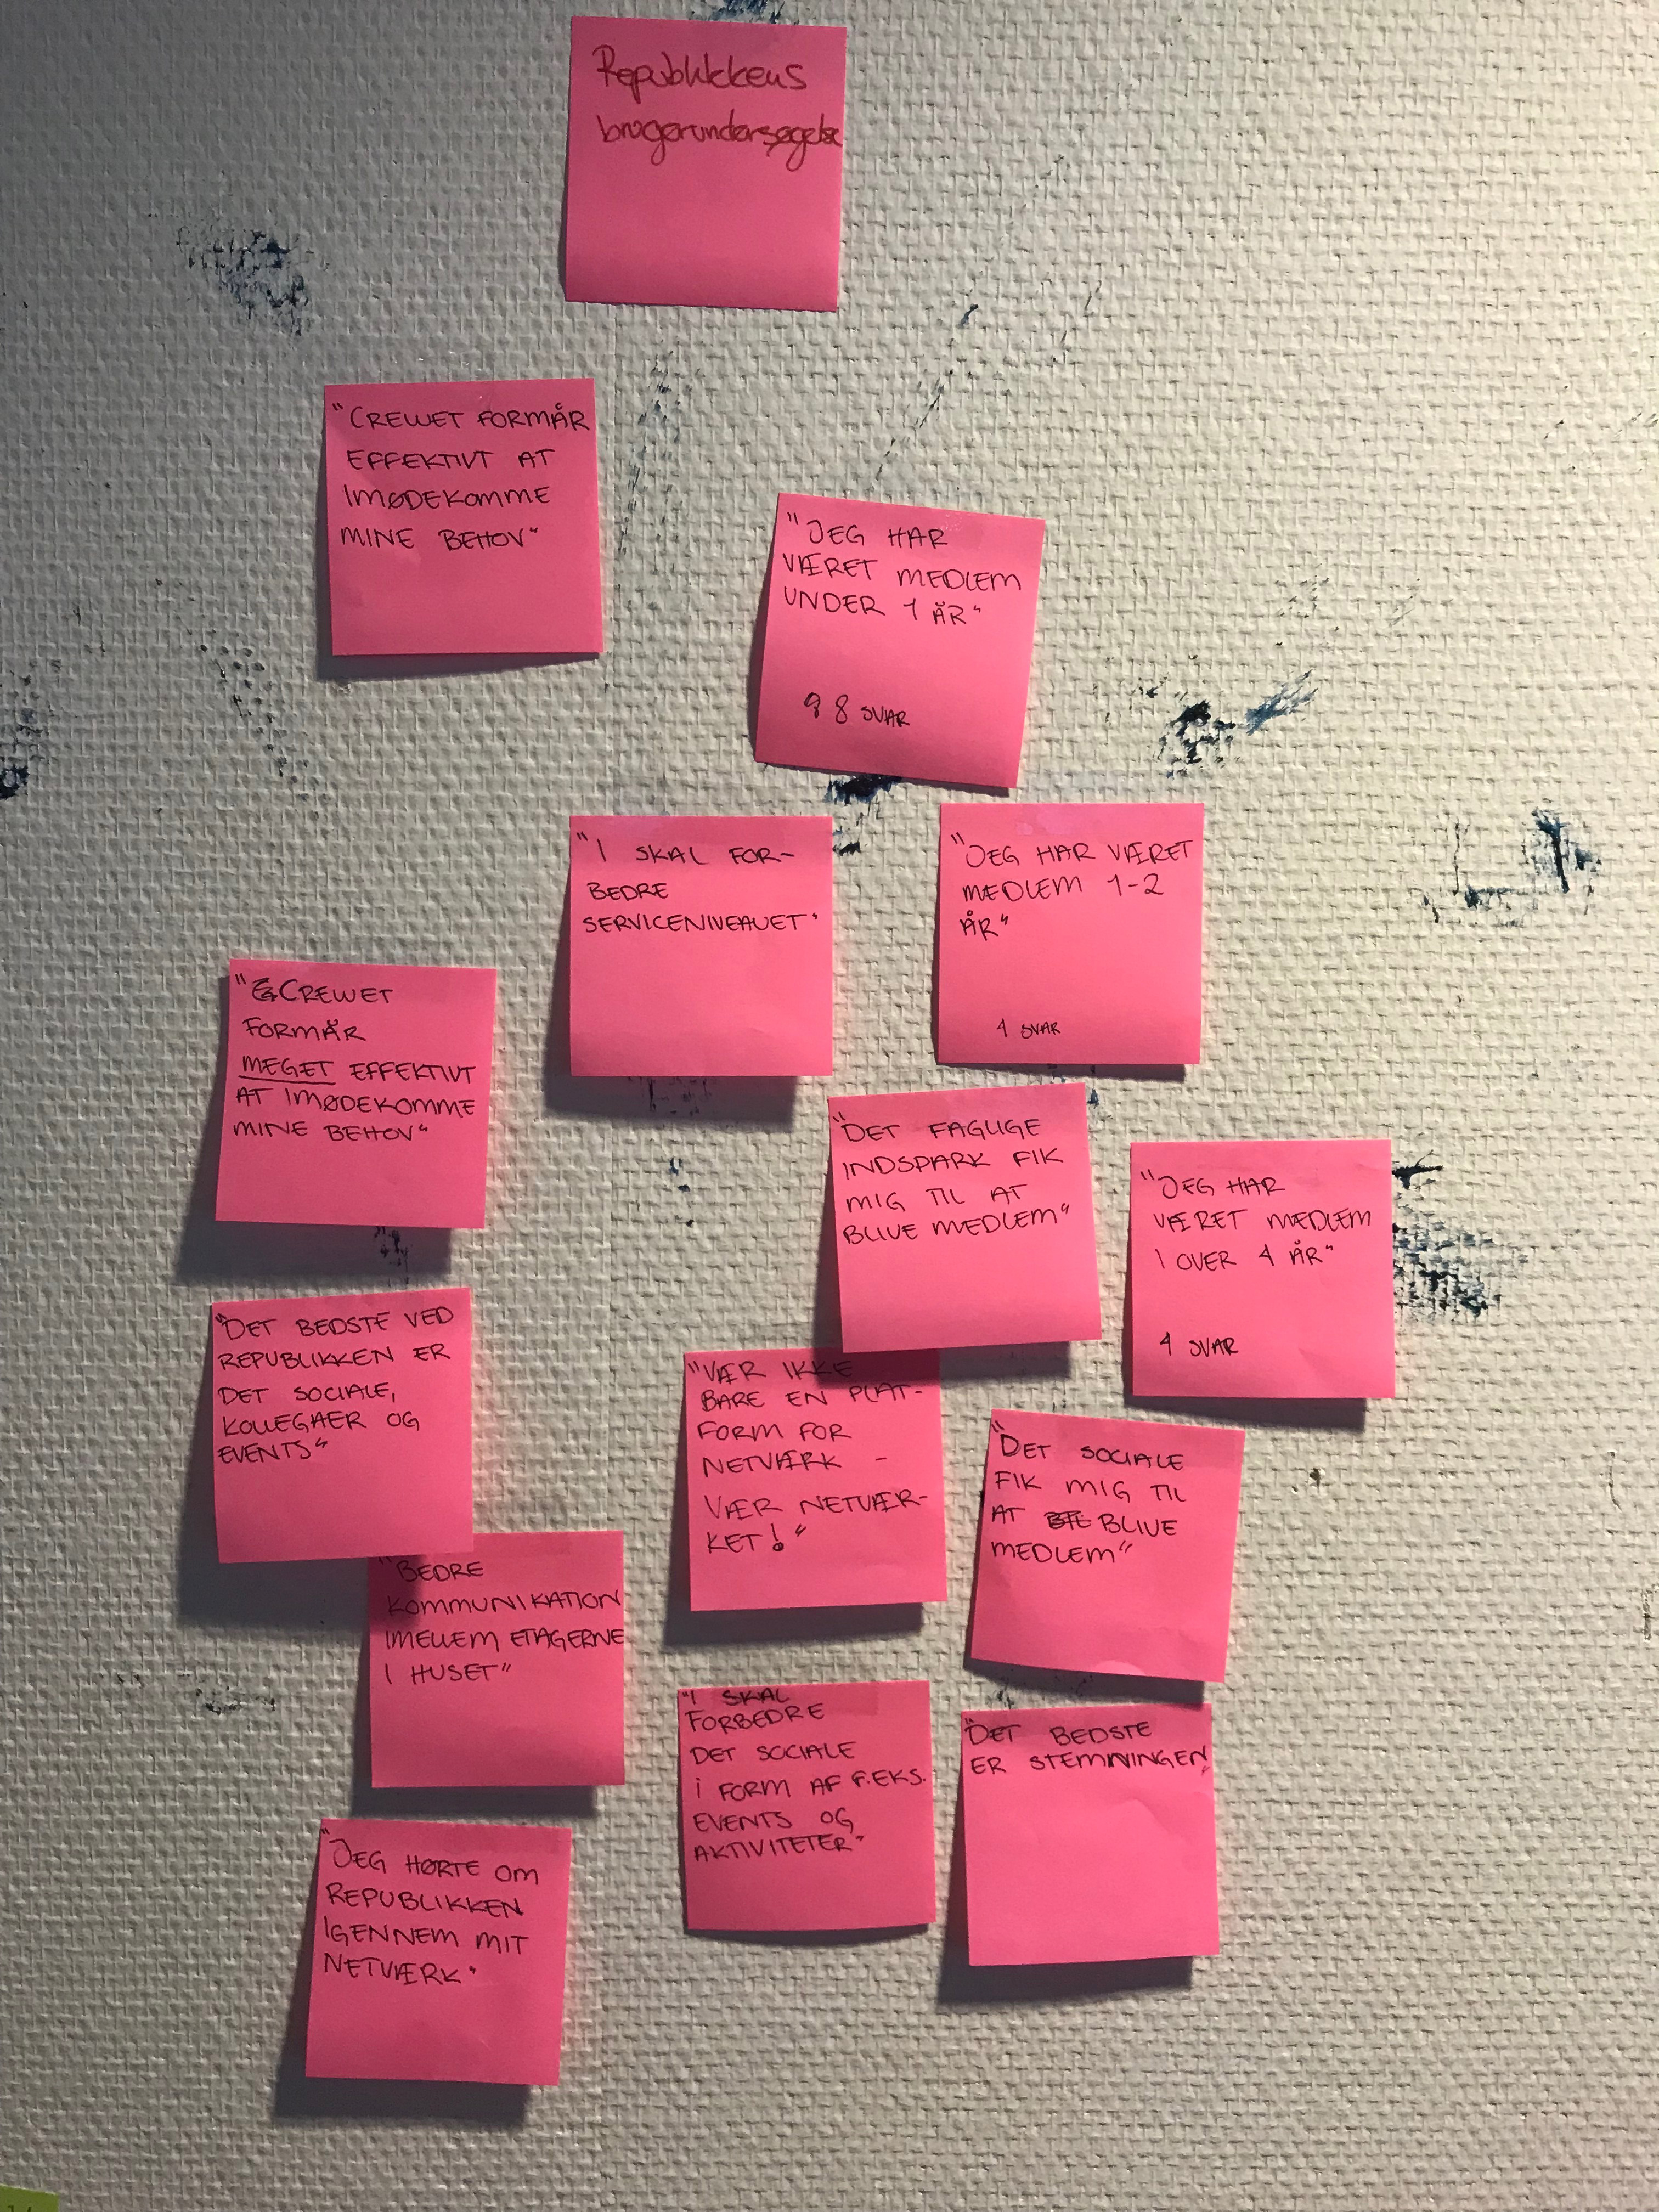 Republikkens
brugerundersøgelse
"CREWET FORMÅR
EFFEKTIVT AT
IMØDEKOMME
MINE BEHOV"
"JEG HAR
VÆRET MEDLEM
UNDER 1 ÅR"
8 SVAR
"I SKAL FOR-
BEDRE
SERVICENIVEAUET"
"JEG HAR VÆRET
MEDLEM 1-2
ÅR"
4 SVAR
"CREWET
FORMÅR
MEGET EFFEKTIVT
AT IMØDEKOMME
MINE BEHOV"
"DET FAGLIGE
INDSPARK FIK
MIG TIL AT
BLIVE MEDLEM"
"JEG HAR
VÆRET MEDLEM
I OVER 4 ÅR"
4 SVAR
"DET BEDSTE VED
REPUBLIKKEN ER
DET SOCIALE,
KOLLEGAER OG
EVENTS"
"VÆR IKKE
BARE EN PLAT-
FORM FOR
NETVÆRK -
VÆR NETVÆR-
KET!"
"DET SOCIALE
FIK MIG TIL
AT BLIVE
MEDLEM"
"BEDRE
KOMMUNIKATION
IMELLEM ETAGERNE
I HUSET"
"I SKAL
FORBEDRE
DET SOCIALE
i FORM AF F.EKS.
EVENTS OG
AKTIVITETER"
"DET BEDSTE
ER STEMNINGEN"
"JEG HØRTE OM
REPUBLIKKEN
IGENNEM MIT
NETVÆRK"